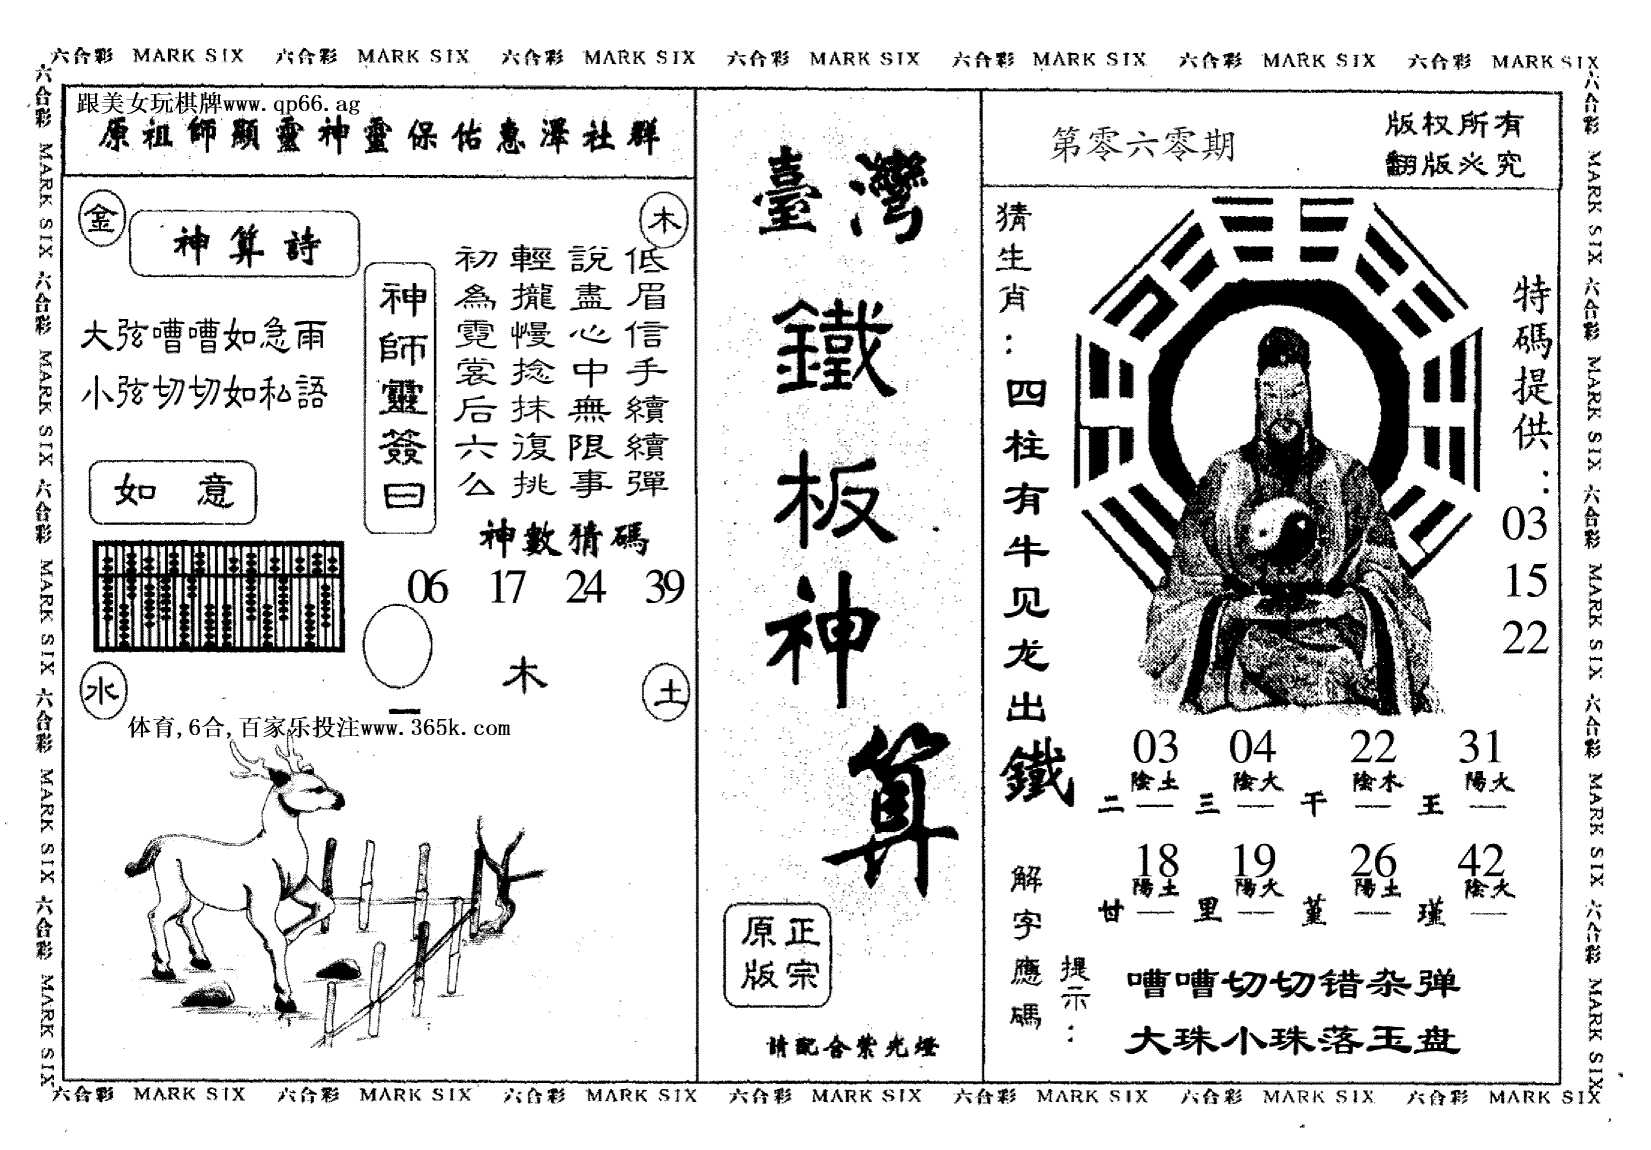 六合彩 MARK SIX 六合彩 MARK SIX 六合彩 MARK SIX 六合彩 MARK SIX 六合彩 MARK SIX 六合彩 MARK SIX 六合彩 MARK SIX
六合彩 MARK SIX 六合彩 MARK SIX 六合彩 MARK SIX 六合彩 MARK SIX 六合彩 MARK SIX
跟美女玩棋牌www.qp66.ag
原祖師顯靈神靈保佑惠澤社群
金
木
神算詩
大弦嘈嘈如急雨
小弦切切如私語
如意
神師靈簽曰
低眉信手續續彈
說盡心中無限事
輕攏慢捻抹復挑
初為霓裳后六么
神數猜碼
06 17 24 39
木
水
土
体育,6合,百家乐投注www.365k.com
臺灣
鐵板神算
正宗
原版
請配合紫光燈
第零六零期
版权所有
翻版必究
猜生肖:四柱有牛见龙出
特碼提供:
03
15
22
鐵
03 04 22 31
陰土 陰火 陰木 陽火
二 三 干 王
18 19 26 42
陽土 陽火 陽土 陰火
廿 里 堇 瑾
解字應碼
提示:
嘈嘈切切错杂弹
大珠小珠落玉盘
六合彩 MARK SIX 六合彩 MARK SIX 六合彩 MARK SIX 六合彩 MARK SIX 六合彩 MARK SIX
六合彩 MARK SIX 六合彩 MARK SIX 六合彩 MARK SIX 六合彩 MARK SIX 六合彩 MARK SIX 六合彩 MARK SIX 六合彩 MARK SIX